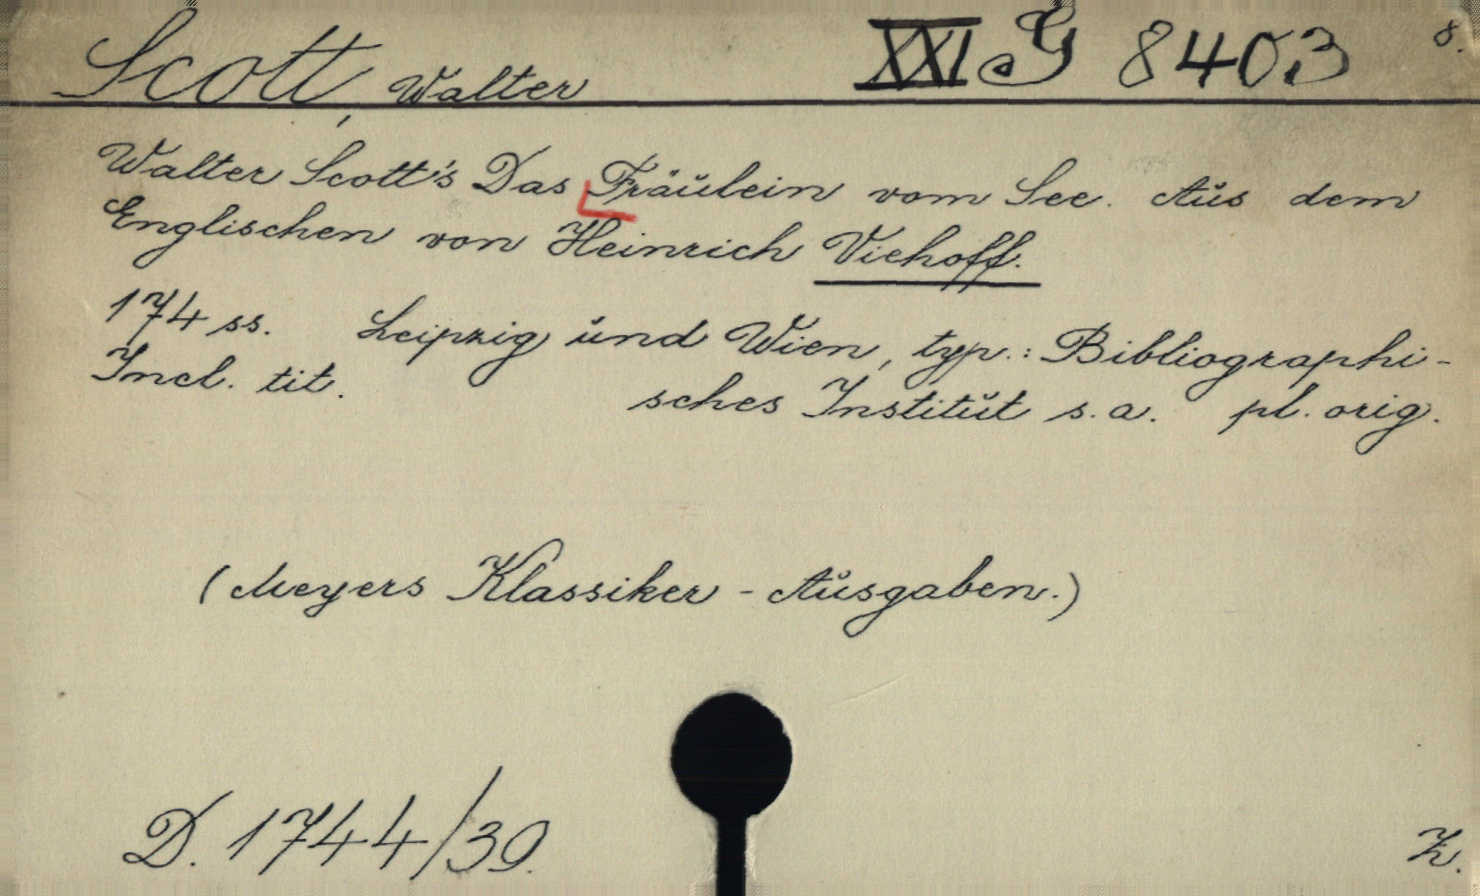 Scott, Walter XXI G 8403 8.
Walter Scott's Das Fräulein vom See. Aus dem
Englischen von Heinrich Viehoff.
174 ss. Leipzig und Wien, typ.: Bibliographi-
Incl. tit. sches Institut s. a. pl. orig.
(Meyers Klassiker - Ausgaben.)
D. 1744/39. Ž.